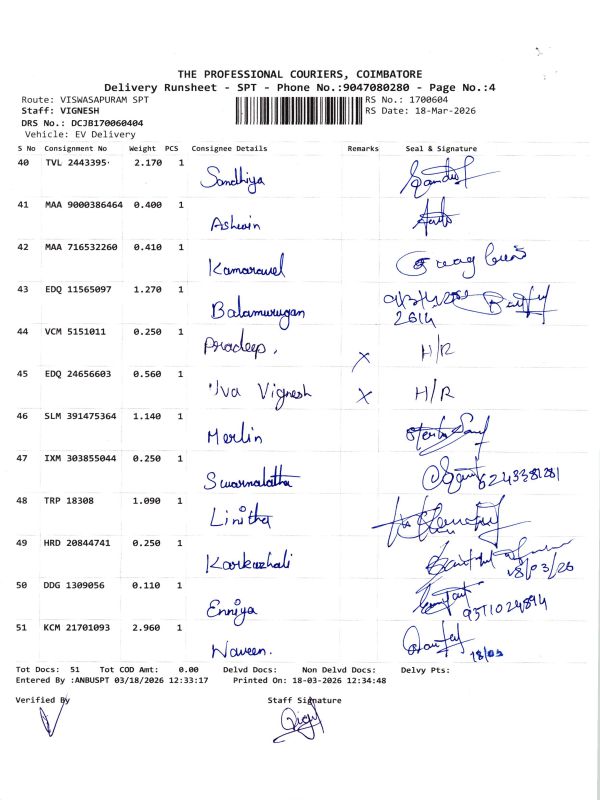 THE PROFESSIONAL COURIERS, COIMBATORE
Delivery Runsheet - SPT - Phone No.:9047080280 - Page No.:4
Route: VISWASAPURAM SPT RS No.: 1700604
Staff: VIGNESH RS Date: 18-Mar-2026
DRS No.: DCJB170060404
Vehicle: EV Delivery
S No Consignment No Weight PCS Consignee Details Remarks Seal & Signature
40 TVL 2443395 2.170 1 Sandhiya
41 MAA 9000386464 0.400 1 Ashwin
42 MAA 716532260 0.410 1 Kamaravel
43 EDQ 11565097 1.270 1 Balamurugan 2614
44 VCM 5151011 0.250 1 Pradeep, X H/R
45 EDQ 24656603 0.560 1 Vignesh X H/R
46 SLM 391475364 1.140 1 Merlin
47 IXM 303855044 0.250 1 Swarnalatha
48 TRP 18308 1.090 1 Linitha
49 HRD 20844741 0.250 1 Karkuzhali 18/03/26
50 DDG 1309056 0.110 1 Enniya
51 KCM 21701093 2.960 1 Naveen. 18/03
Tot Docs: 51 Tot COD Amt: 0.00 Delvd Docs: Non Delvd Docs: Delvy Pts:
Entered By :ANBUSPT 03/18/2026 12:33:17 Printed On: 18-03-2026 12:34:48
Verified By Staff Signature